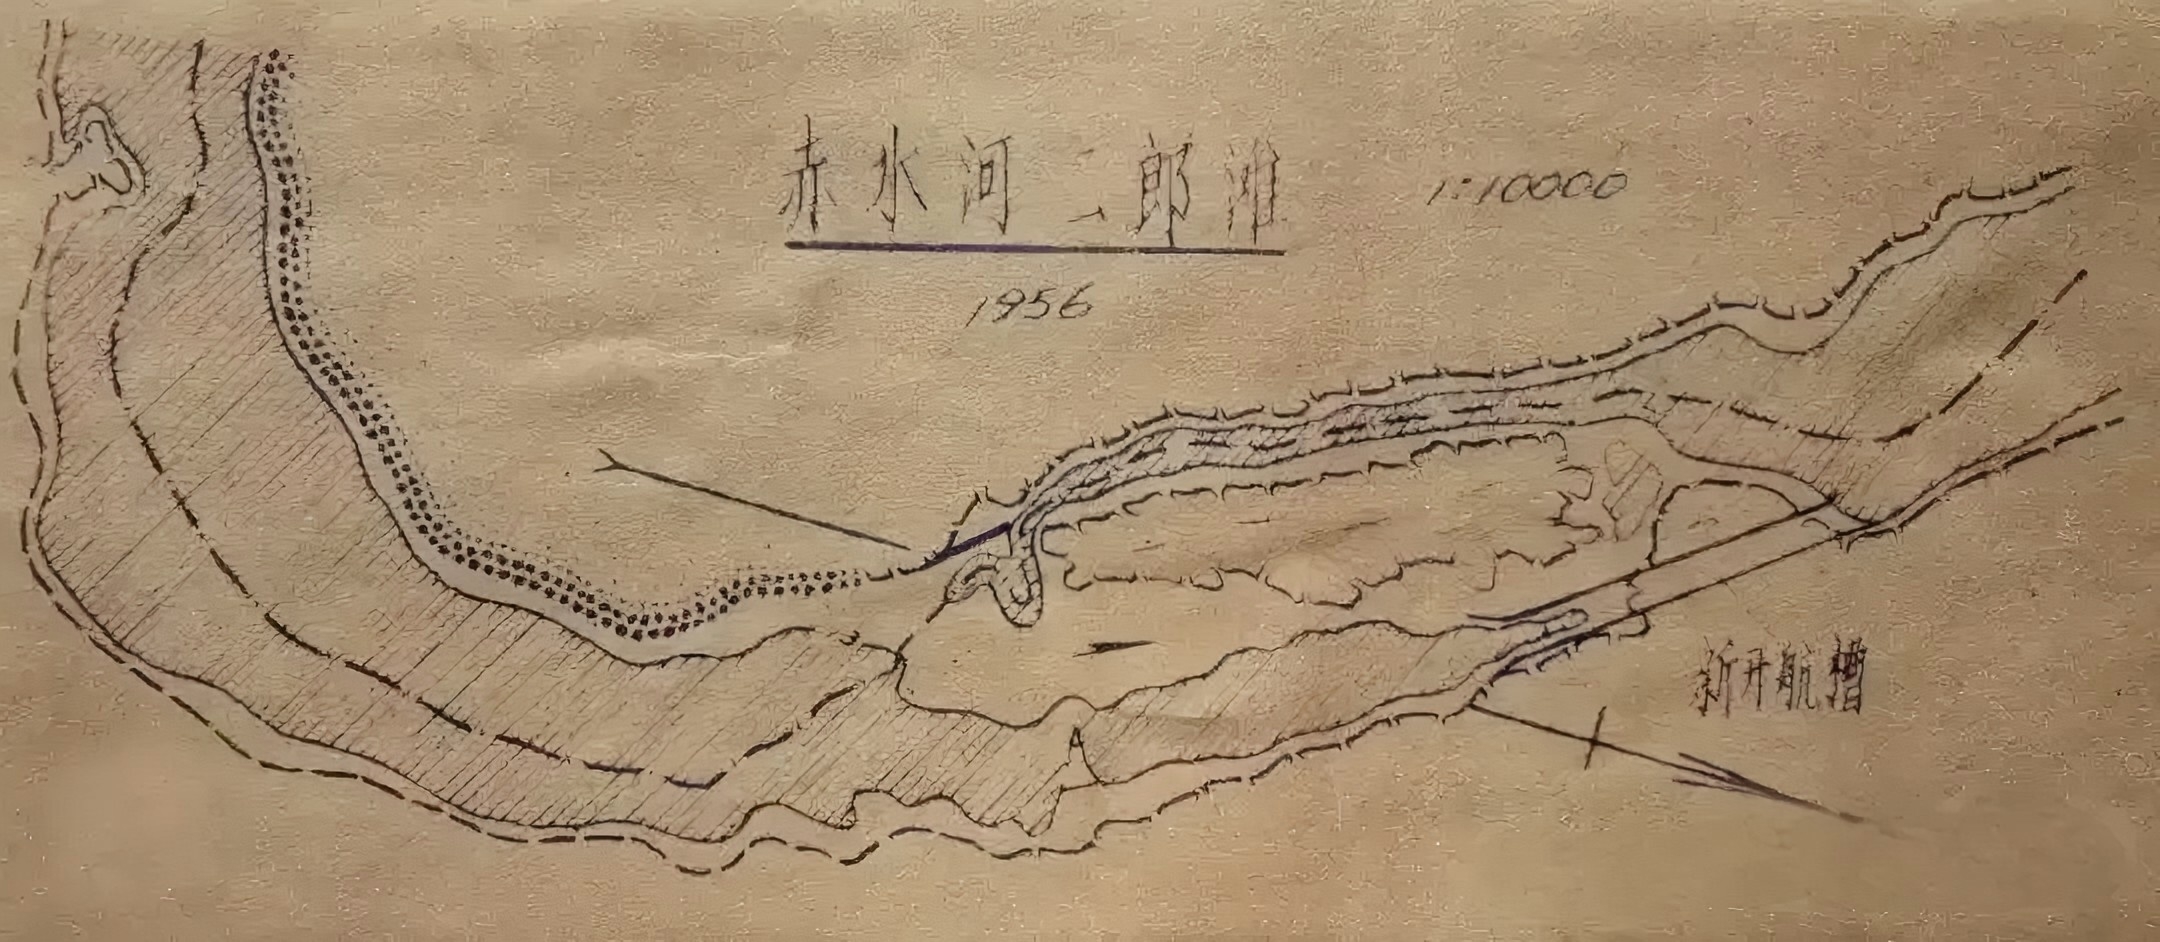 赤水河二郎滩
1:10000
1956
新开航槽